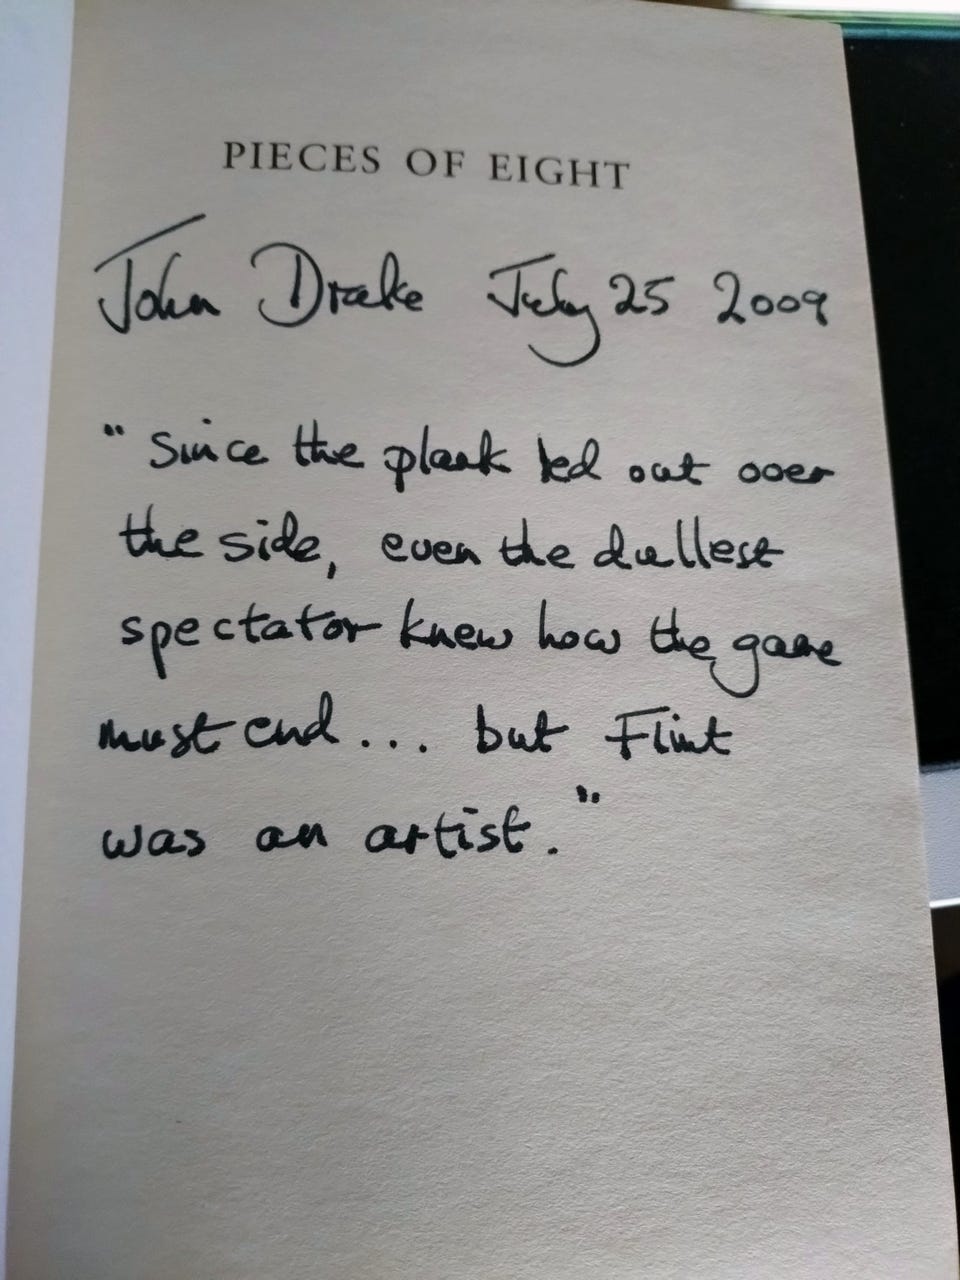 PIECES OF EIGHT
John Drake July 25 2009
"Since the plank led out over
the side, even the dullest
spectator knew how the game
must end... but Flint
was an artist."